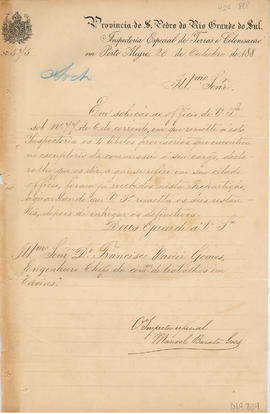 Provincia de S. Pedro do Rio Grande do Sul.
Inspectoria Especial de Terras e Colonisação
em Porto Alegre, 20 de Outubro de 188
Ill.mo Snr.
Em solução ao officio de V. S.ª
sob N.º 77 de 6 do corrente, em que remette a esta
Inspectoria os 4 titulos provisorios que encontrou
no escriptorio da commissão a seu cargo, decla
ro lhe que os
officio, foram recebidos nesta
aguardando que V. S.ª remetta os dois
depois de entregar os definitivos.
Deus Guarde a V. S.ª
Ill.mo Snr. D.r Francisco Xavier Gomes,
Engenheiro Chefe da com.am de trabalhos em
Caxias.
O Inspector especial
Manoel